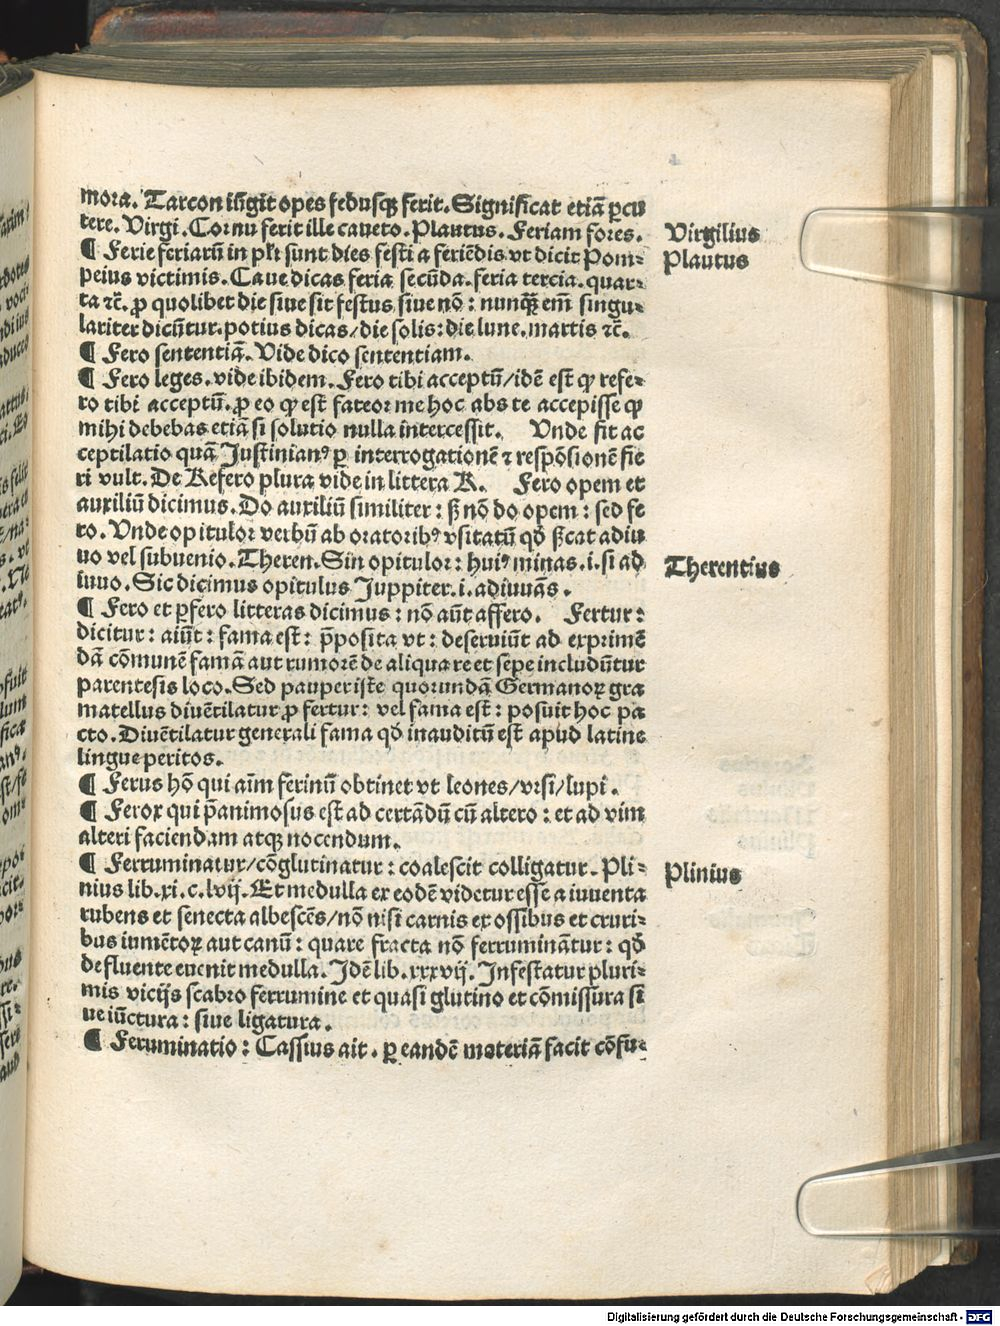 mora. Tarcon iũgit opes fedusqȝ ferit. Significat etiã ꝑcu
tere. Virgi. Cornu ferit ille caueto. Plautus. Feriam fores.
Virgilius
Plautus
¶ Ferie feriarũ in plĩ sunt dies festi a feriẽdis vt dicit Pom⸗
peius victimis. Caue dicas feria secũda. feria tercia. quar⸗
ta ⁊c̃. ꝓ quolibet die siue sit festus siue nõ: nunqȝ em̃ singu⸗
lariter dicũtur. potius dicas/die solis: die lune. martis ⁊c̃.
¶ Fero sententiã. Vide dico sententiam.
¶ Fero leges. vide ibidem. Fero tibi acceptũ/idẽ est ꝙ refe⸗
ro tibi acceptũ. ꝓ eo ꝙ est fateor me hoc abs te accepisse ꝙ
mihi debebas etiã si solutio nulla intercessit. Vnde fit ac
ceptilatio quã Justinianꝰ ꝑ interrogationẽ ⁊ respõsionẽ fie
ri vult. De Refero plura vide in littera R. Fero opem et
auxiliũ dicimus. Do auxiliũ similiter: sʒ nõ do opem: sed fe
ro. Vnde opitulor verbũ ab oratoribꝰ vsitatũ qð sʒcat adiu
uo vel subuenio. Theren. Sin opitulor: huiꝰ minas. i. si ad
iuuo. Sic dicimus opitulus Juppiter. i. adiuuãs.
Therentius
¶ Fero et ꝑfero litteras dicimus: nõ aũt affero. Fertur:
dicitur: aiũt: fama est: p̃posita vt: deseruiũt ad exprimẽ
dã cõmunẽ famã aut rumorẽ de aliqua re et sepe includũtur
parentesis loco. Sed pauper iste quorundã Germanoꝝ gra
matellus diuẽtilatur ꝓ fertur: vel fama est: posuit hoc pa
cto. Diuẽtilatur generali fama qð inauditũ est apud latine
lingue peritos.
¶ Ferus hõ qui aĩm ferinũ obtinet vt leones/vrsi/lupi.
¶ Ferox qui p̃animosus est ad certãdũ cũ altero: et ad vim
alteri faciendam atqȝ nocendum.
¶ Ferruminatur/cõglutinatur: coalescit colligatur. Pli⸗
nius lib. xi. c. lvij. Et medulla ex eodẽ videtur esse a iuuenta
rubens et senecta albescẽs/nõ nisi carnis ex ossibus et cruri⸗
bus iumẽtoꝝ aut canũ: quare fracta nõ ferruminãtur: qð
defluente euenit medulla. Jdẽ lib. xxxvij. Jnfestatur pluri⸗
mis vicijs scabro ferrumine et quasi glutino et cõmissura si
ue iũctura: siue ligatura.
Plinius
¶ Feruminatio: Cassius ait. ꝑ eandẽ materiã facit cõfu⸗
Digitalisierung gefördert durch die Deutsche Forschungsgemeinschaft - DFG